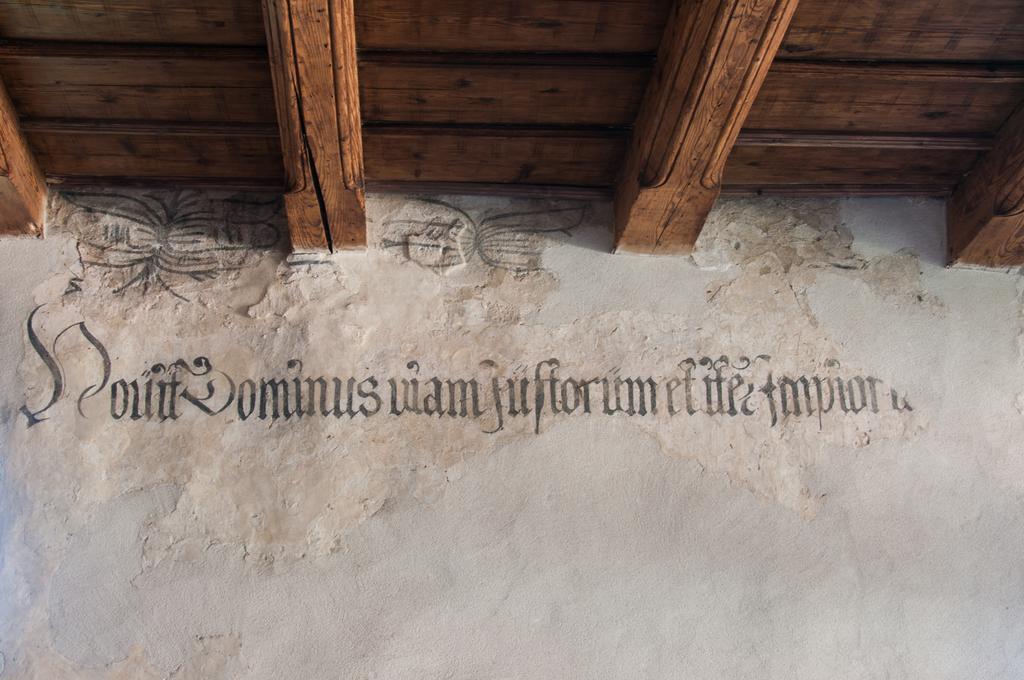 Nouit Dominus uiam Justorum et iter Impioru